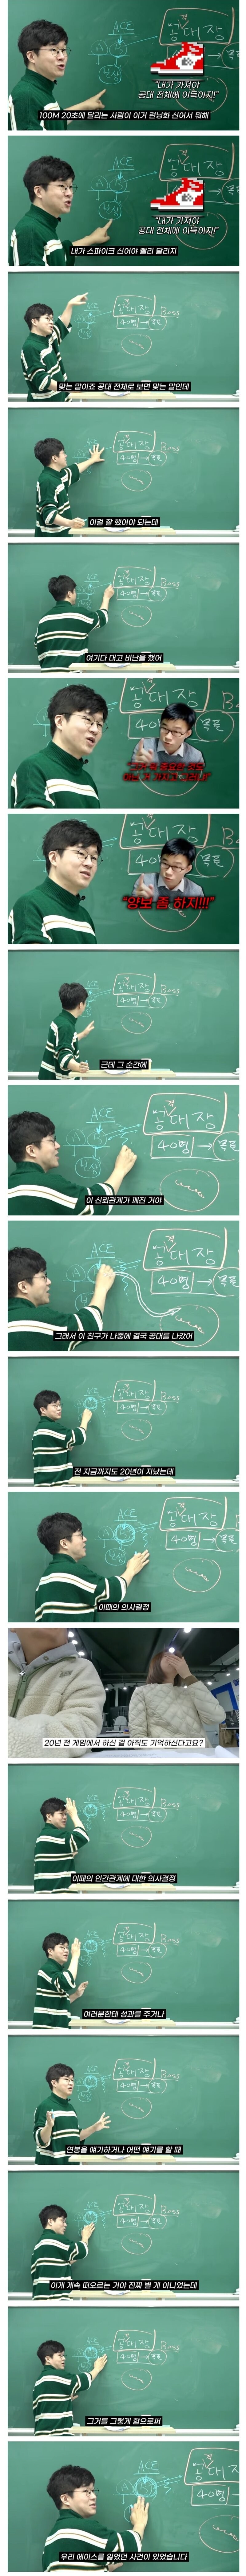 ACE
공대장
목표
"내가 가져야
공대 전체에 이득이지!"
100M 20초에 달리는 사람이 이거 런닝화 신어서 뭐해
ACE
공대장
"내가 가져야
공대 전체에 이득이지!"
내가 스파이크 신어야 빨리 달리지
공대장
40명
맞는 말이죠 공대 전체로 보면 맞는 말인데
공대장
40명
이걸 잘 했어야 되는데
공대장
40명
여기다 대고 비난을 했어
공대장
40
목표
공대장
40
목표
"양보 좀 하지!!!"
공대장
40명
근데 그 순간에
ACE
공대장
40명 →
이 신뢰관계가 깨진 거야
ACE
공대장
40명 →
그래서 이 친구가 나중에 결국 공대를 나갔어
ACE
공대장
40명
전 지금까지도 20년이 지났는데
ACE
공대장
40명
이때의 의사결정
20년 전 게임에서 하신 걸 아직도 기억하신다고요?
ACE
공대장
40명
이때의 인간관계에 대한 의사결정
ACE
공대장
40명
여러분한테 성과를 주거나
ACE
공대장
40명
연봉을 얘기하거나 어떤 얘기를 할 때
ACE
공대장
40명
이게 계속 떠오르는 거야 진짜 별 게 아니었는데
ACE
공대장
40명
그거를 그렇게 함으로써
ACE
공대장
40명 →
우리 에이스를 잃었던 사건이 있었습니다